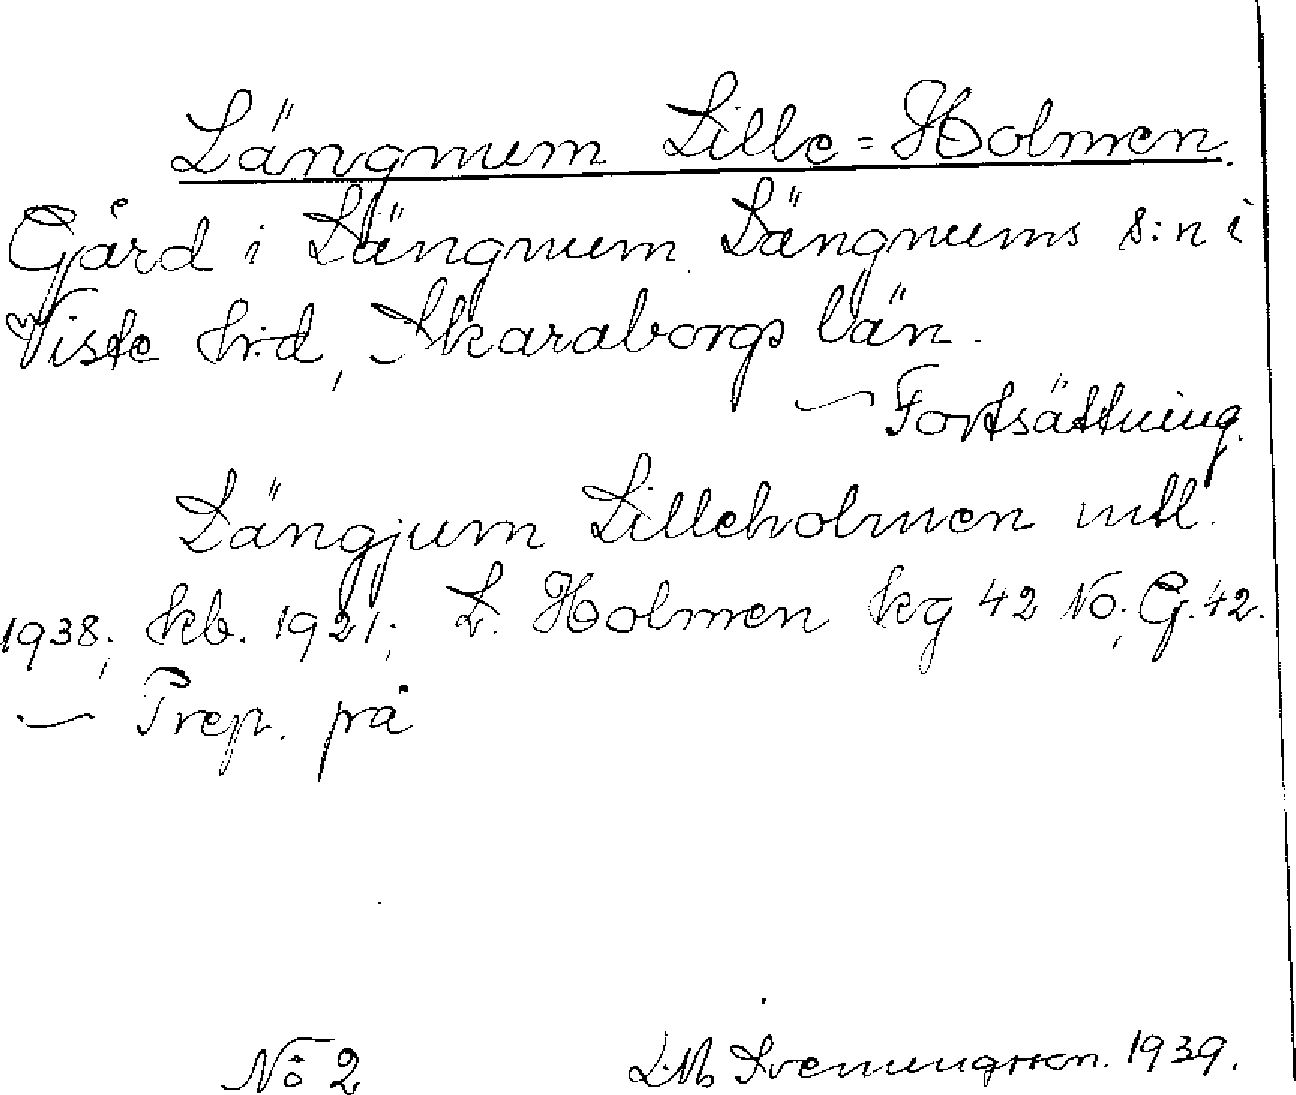 Längnum Lille=Holmen.
Gård i Längnum Längnums s:n i
Viste h:d, Skaraborgs län.
— Fortsättning.
Längjum Lilleholmen mtl.
1938; skb. 1921; L. Holmen kg 42 No; G.42.
— Prep. på
No 2 L.M. Svenungsson. 1939.